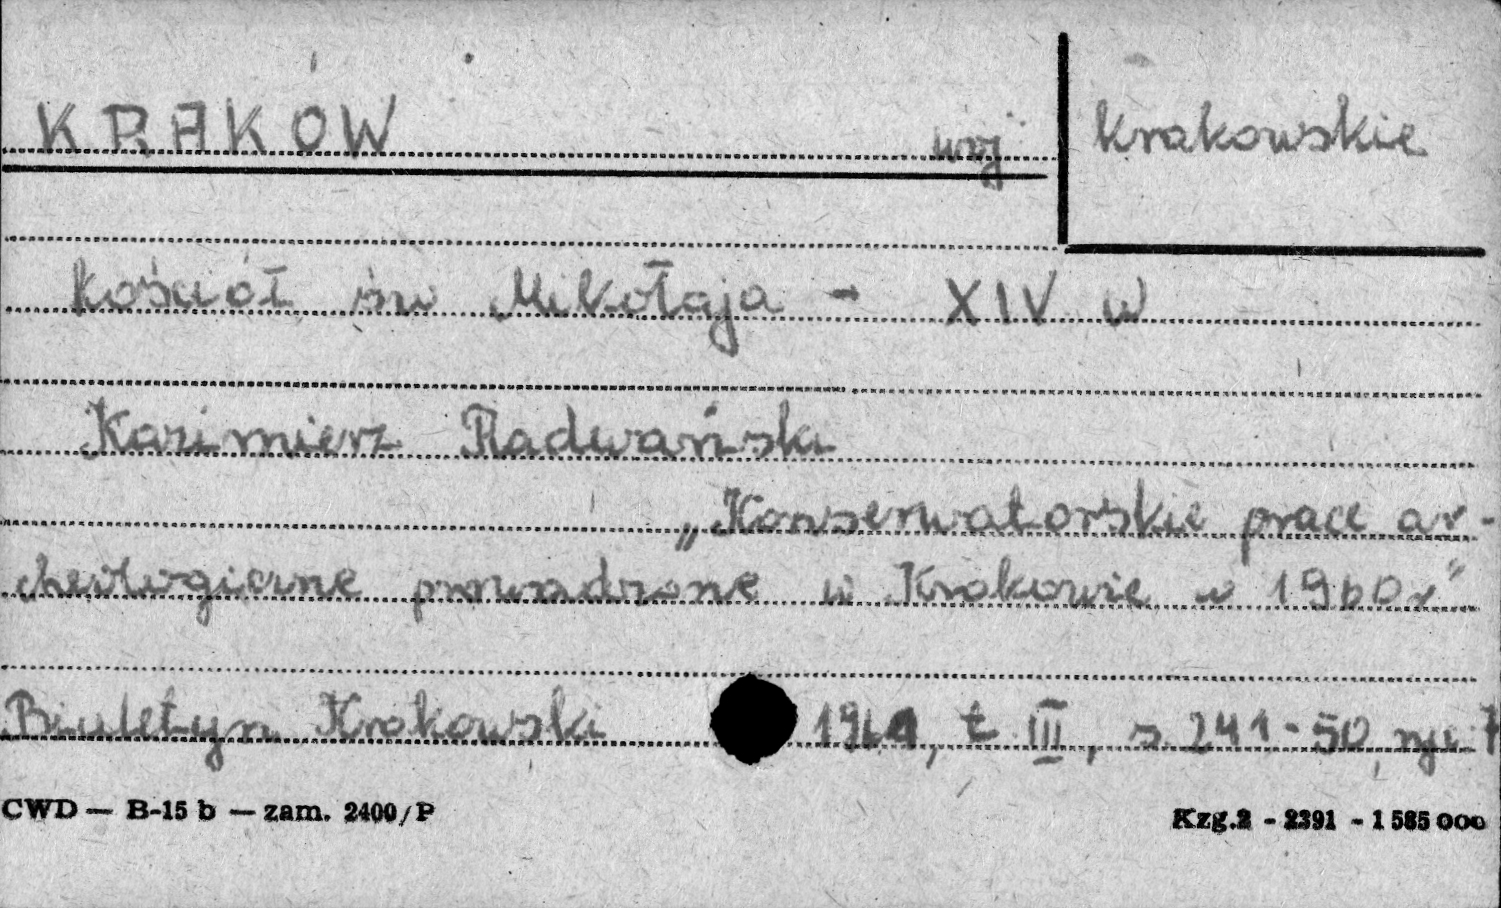 KRAKÓW woj krakowskie
kościół św Mikołaja - XIV w
Kazimierz Radwański
„Konserwatorskie prace ar-
cheologiczne prowadzone w Krakowie w 1960r"
Biuletyn Krakowski 1961, t III, s 241-50, ryc 7
CWD — B-15 b — zam. 2400/P Kzg.2 - 2391 - 1 585 000